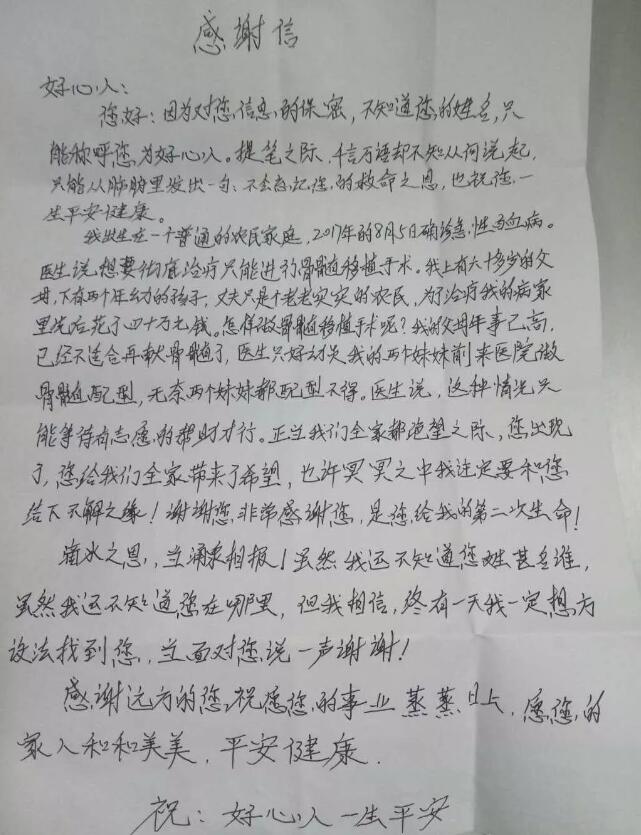 感谢信
好心人：
您好：因为对您信息的保密，不知道您的姓名，只
能称呼您为好心人。提笔之际，千言万语却不知从何说起，
只能从肺腑里发出一句：不会忘记您的救命之恩，也祝您一
生平安健康。
我出生在一个普通的农民家庭，2017年的8月5日确诊急性白血病。
医生说想要彻底治疗只能进行骨髓移植手术。我上有六十多岁的父
母，下有两个年幼的孩子，丈夫只是个老老实实的农民，为了治疗我的病家
里先后花了四十万元钱。怎样做骨髓移植手术呢？我的父母年事已高，
已经不适合再献骨髓了，医生只好动员我的两个妹妹前来医院做
骨髓配型，无奈两个妹妹都配型不得。医生说，这种情况只
能等待有志愿的帮助才行。正当我们全家都绝望之际，您出现
了，您给我们全家带来了希望，也许冥冥之中我注定要和您
结下不解之缘！谢谢您，非常感谢您，是您给我的第二次生命！
滴水之恩，当涌泉相报！虽然我还不知道您姓甚名谁，
虽然我还不知道您在哪里，但我相信，终有一天我一定想方
设法找到您，当面对您说一声谢谢！
感谢远方的您，祝愿您的事业蒸蒸日上，愿您的
家人和和美美，平安健康.
祝：好心人一生平安